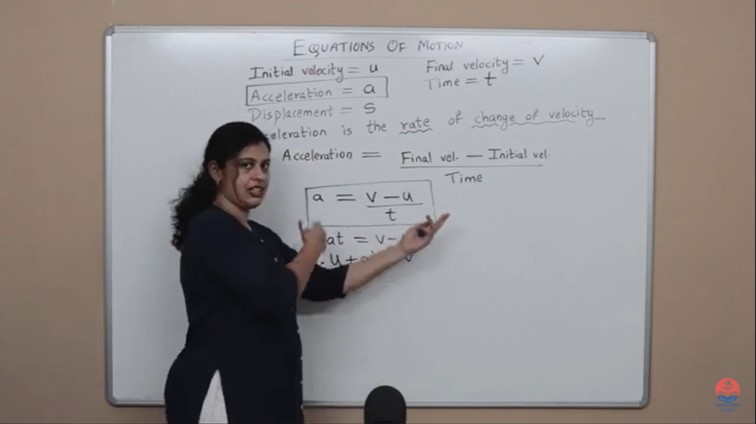 EQUATIONS OF MOTION
Initial velocity = u
Final velocity = v
Acceleration = a
Time = t
Displacement = S
is the rate of change of velocity
Acceleration = Final vel. - Initial vel.
Time
a = v - u
t
at = v -
u +